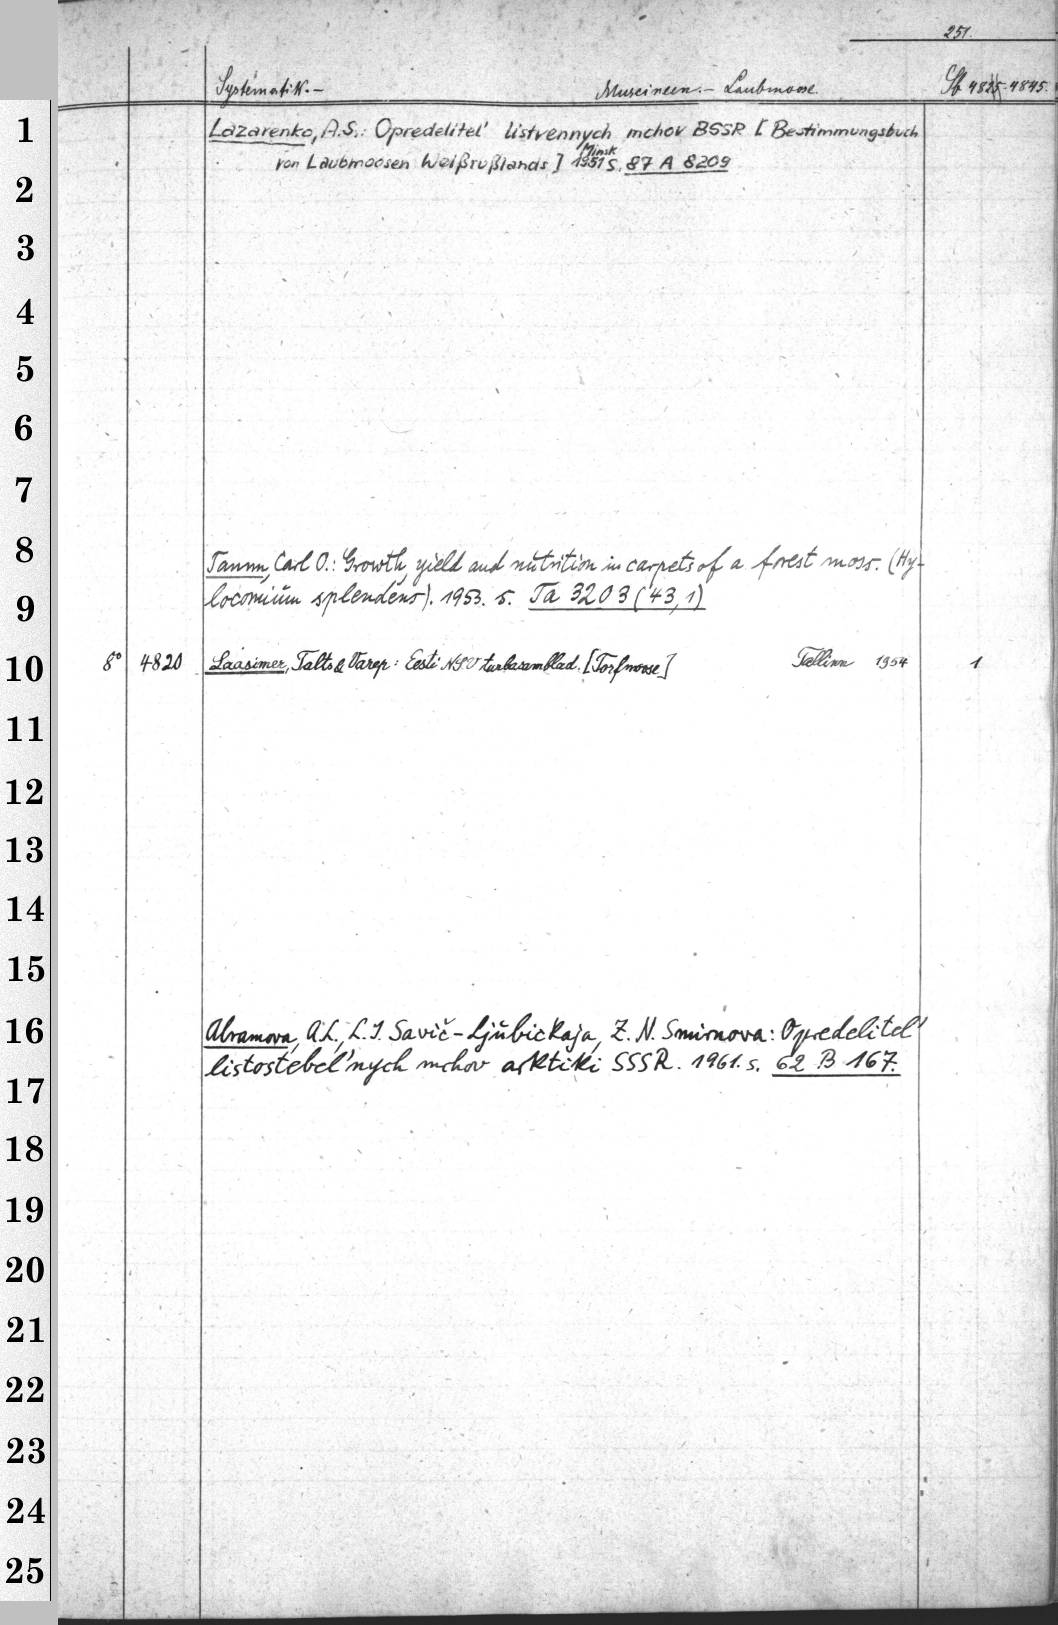 251.
Systematik.— Muscineen.— Laubmoose. Lb 4815-4845.
1 Lazarenko, A.S.: Opredelitel' listvennych mchov BSSR [Bestimmungsbuch
von Laubmoosen Weißrußlands] Minsk 1951 s. 87 A 8209
2
3
4
5
6
7
8 Tamm, Carl O.: Growth, yield and nutrition in carpets of a forest moss. (Hy-
locomium splendens). 1953. s. Ta 3203 (43,1)
9
10 8° 4820 Laasimer, Talts & Varep: Eesti NSV turbasamblad. [Torfmoose] Tallinn 1954 1
11
12
13
14
15
16 Abramova, A.L., L.I. Savič-Ljubickaja, Z.N. Smirnova: Opredelitel'
listostebel'nych mchov arktiki SSSR. 1961. s. 62 B 167.
17
18
19
20
21
22
23
24
25